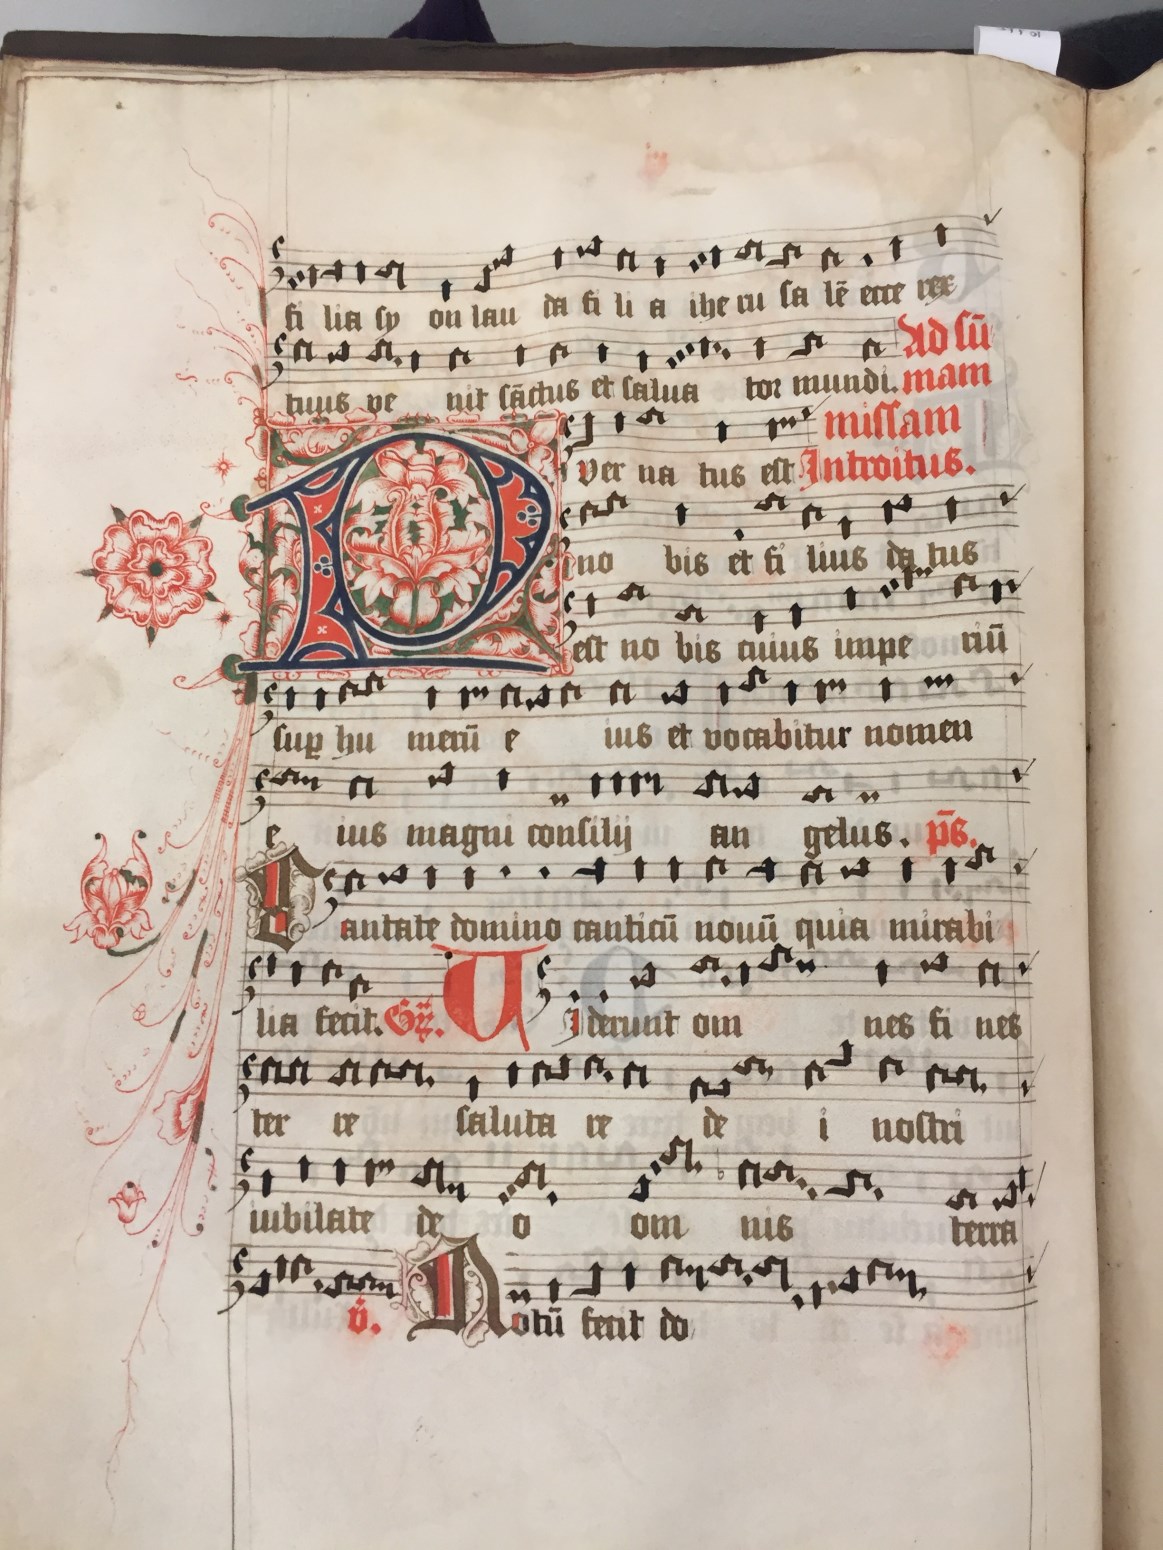 fi lia sy on lau da fi li a ihe ru sa lē ecce rex
tuus ve nit sāctus et salua tor mundi. Ad sū
mam
P ver na tus est missam
Introitus.
no bis et fi lius da tus
est no bis cuius impe riū
sup hu merū e ius et vocabitur nomen
e ius magni consilij an gelus. p̄s.
Cantate domino canticū nouū quia mirabi
lia fecit. Gr̄. Viderunt om nes fi nes
ter re saluta re de i nostri
iubilate de o om nis terra
v̄. Notū fecit do